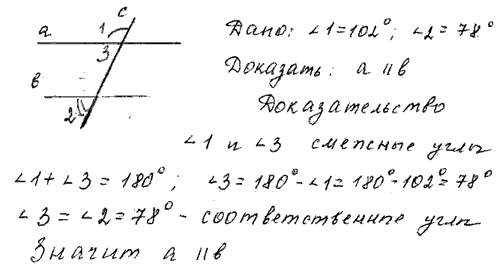 c
a 1 3
в 2
Дано: ∠1=102°; ∠2=78°
Доказать: a ∥ в
Доказательство
∠1 и ∠3 смежные углы
∠1+∠3=180°; ∠3=180°-∠1=180°-102°=78°
∠3=∠2=78° - соответственные углы
Значит a ∥ в